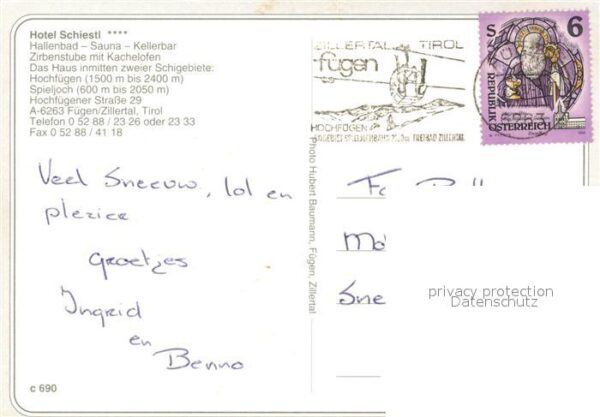 Hotel Schiestl ****
Hallenbad – Sauna – Kellerbar
Zirbenstube mit Kachelofen
Das Haus inmitten zweier Schigebiete:
Hochfügen (1500 m bis 2400 m)
Spieljoch (600 m bis 2050 m)
Hochfügener Straße 29
A-6263 Fügen/Zillertal, Tirol
Telefon 0 52 88 / 23 26 oder 23 33
Fax 0 52 88 / 41 18
ZILLERTAL TIROL
fügen
HOCHFÜGEN
FREIBAD ZILLERTAL
6
REPUBLIK
ÖSTERREICH
Veel Sneeuw, lol en
plezier
Groetjes
Ingrid
en
Benno
Photo Hubert Baumann, Fügen, Zillertal
Fa
Sne
privacy protection
Datenschutz
c 690